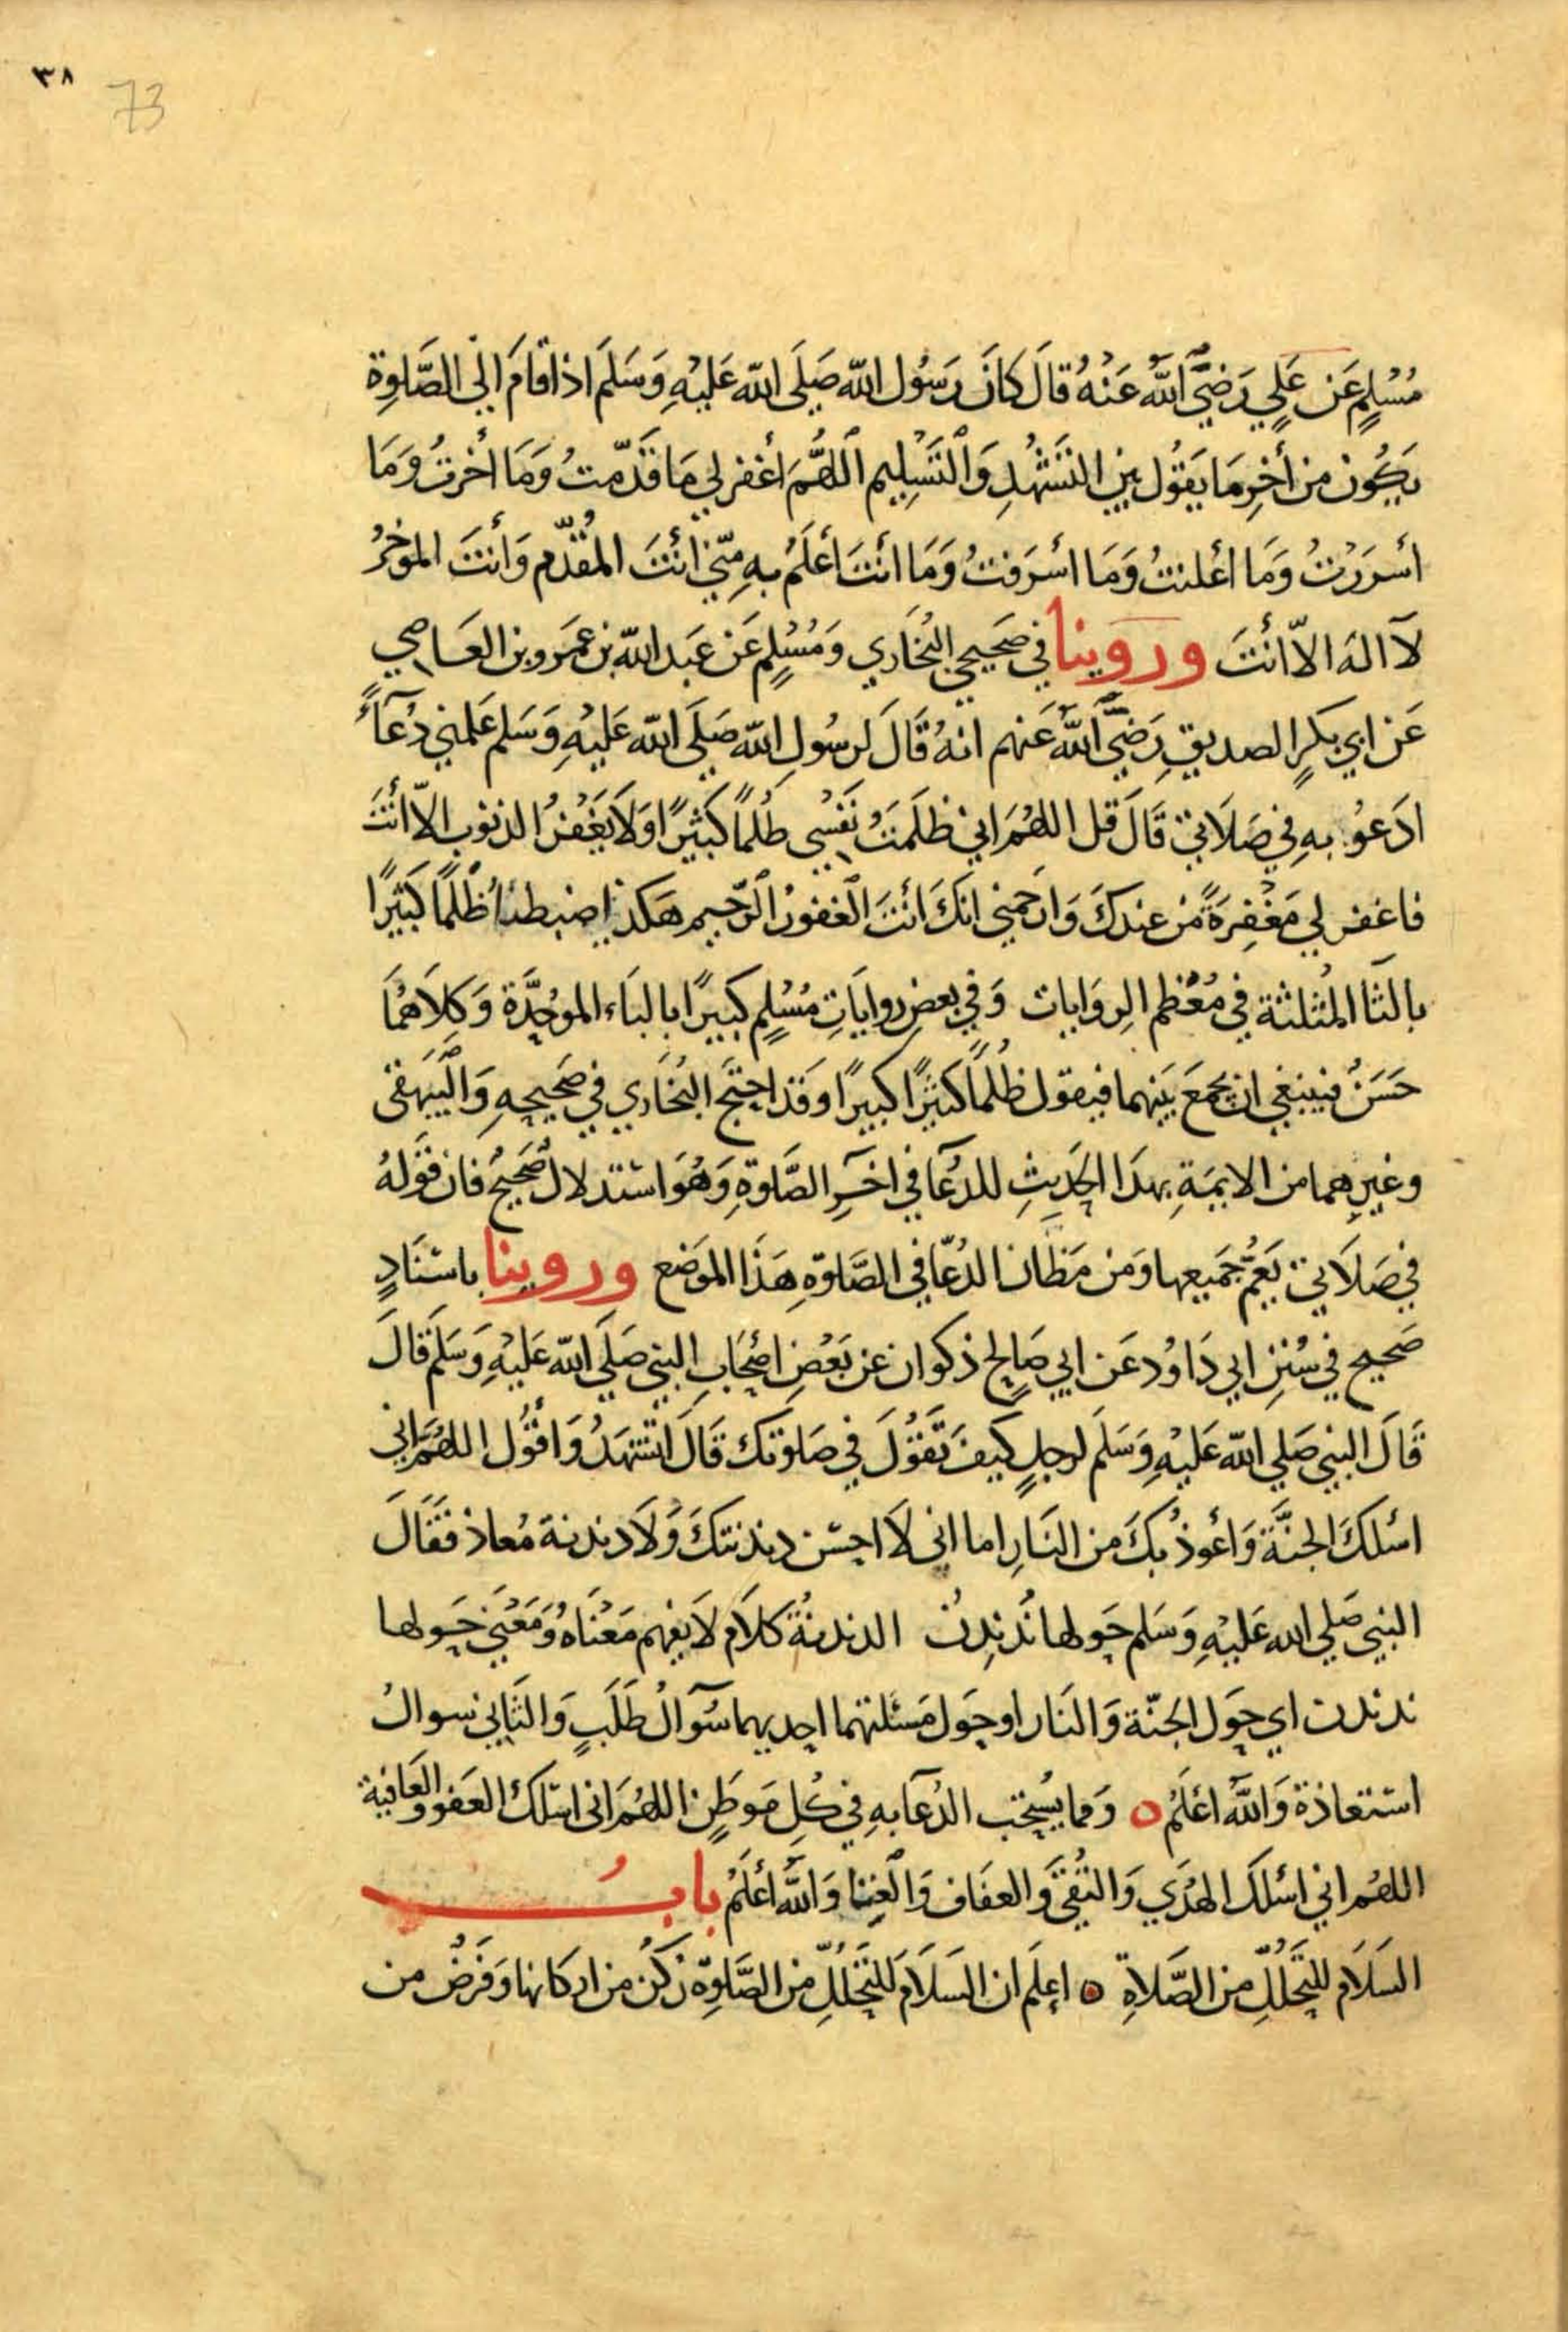 ٣٨
73
مُسْلِمٍ عَن عَلِي رَضِيَ اللَّه عَنْهُ قَالَ كَانَ رَسُول اللّه صَلَى اللّه عَلَيْهِ وَسَلَم اذا قامَ الي الصَّلوِة
يَكُون من أخِرِ مَا يَقُول بين التشَهُّدِ وَالتَسْلِيم اللَّهُمَ اغفر لي مَا قَدّمتُ وَمَا أخرتُ وَمَا
اسْرَرْتُ وَمَا اعْلنتُ وَمَا اسْرَفتُ وَمَا انتَ أعْلَمُ بهِ مِنّي انْتَ المُقَدّم وَانتَ الموخرُ
لَا الهَ الاّ أنْتَ وروينا في صَحيحي البُخَاري وَمُسْلِمٍ عَن عَبد اللّه بن عمَرو بن العَاصي
عَن ابي بكرٍ الصديقِ رَضِيَ اللَّه عَنهم انهُ قَالَ لرسُولِ اللّه صَلَى اللّه عَليْهِ وَسَلم عَلمني دُعَآءً
ادَعوُ بهِ في صَلَاتي قَالَ قل اللهُمَ اني ظلَمتُ نَفْسِي ظُلمًا كَثيرًا وَلَا يَغْفرُ الذنوب الاّ أنْتَ
فاغفر لي مَغْفِرَةً من عندكَ وَارحَمني انكَ انْتَ الغفورُ الرّحيم هَكذا ضبطناه ظُلمًا كثيرًا
بالثا المثلثة في مُعْظم الروَايات وَفي بعض روايَاتِ مُسْلِمٍ كبيرًا بالبَاء الموحَّدَة وَكِلَاهُمَا
حَسَنٌ فينبغي ان يجمَعَ بَينهما فيقول ظُلمًا كثيرًا كبيرًا وَقَد احتَج البُخَاري في صَحيحِهِ وَالبَيهَقي
وغيرِهما من الايمَةِ بهذَا الحَديثِ للدُعَا في اخَرِ الصَّلوةِ وَهُوَ استدلالٌ صَحيحٌ فان قَوْلهُ
في صَلَاتي يَعُمُّ جَميعها وَمن مَظان الدُعَا في الصَّلوةِ هَذَا الموَضع وروينا باسْنَادٍ
صَحيح في سُنَنِ ابي دَاوُد عَن ابي صَالِحٍ ذكوان عن بَعْضِ اصْحَابِ النبي صَلَى اللّه عَليْهِ وَسَلَم قَالَ
قَالَ النبي صَلي اللّه عَليْهِ وَسَلَم لرجلٍ كيفَ تَقُولَ في صَلوتك قَالَ اتشهَدُ وَاقُول اللهُمَ اني
اسْلكَ الجنَّة وَاعُوذ بكَ من النَارِ اما اني لَا احسن دندنتكَ وَلَا دندنة مُعاذ فقَالَ
النبي صَلي الله عَليْهِ وَسَلم حَولها نُدَندِنُ الدندنةُ كلَام لَا يفهم مَعْنَاهُ وَمَعْني حَولها
ندندن اي حَول الجنّة وَالنَار او حَول مَسْئلتهما احديهما سُوَالُ طَلَبٍ وَالثَاني سوالُ
استعاذة وَاللَّه اعْلَمُ ○ وَمما يُستحب الدُعَا بهِ في كُلِ مَوطِنٍ اللهُمَ اني اسْلكَ العَفو والعَافية
اللهُم اني اسْلكَ الهُدَي وَالتُقَي وَالعفَاف وَالْغِنا وَاللَّه أعْلَمُ بابُ
السَلَام للتَحَلُلِ من الصَّلاةِ ○ اعِلَم ان السَلَام للتَحَلُلِ من الصَّلوِة رُكن من اركانها وَفَرَضٌ من